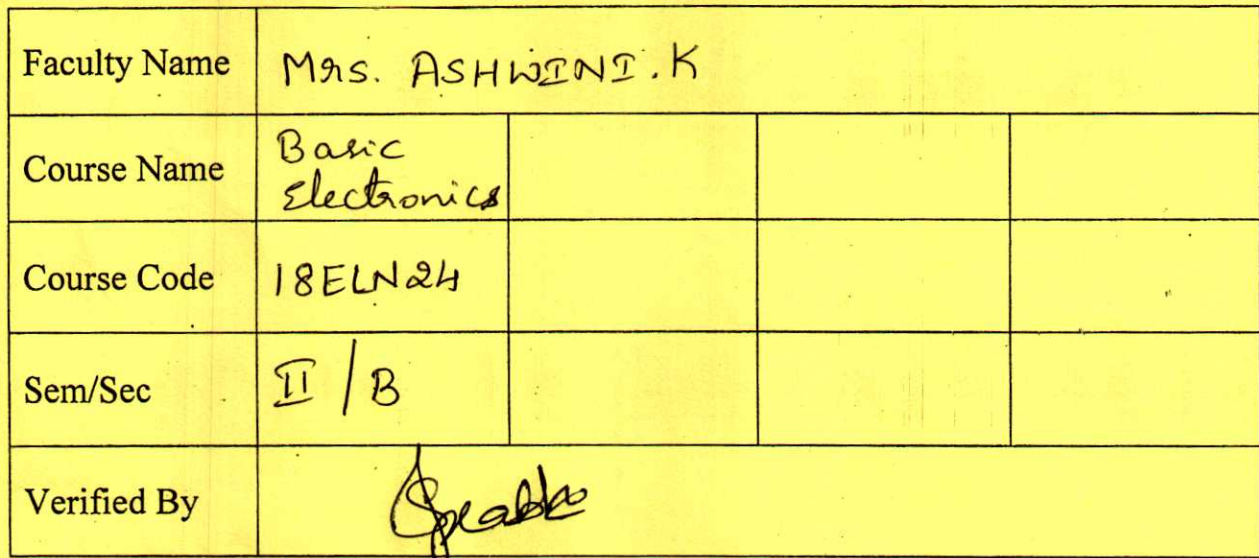 Faculty Name Mrs. ASHWINI.K
Course Name Basic
Electronics
Course Code 18ELN24
Sem/Sec II/B
Verified By